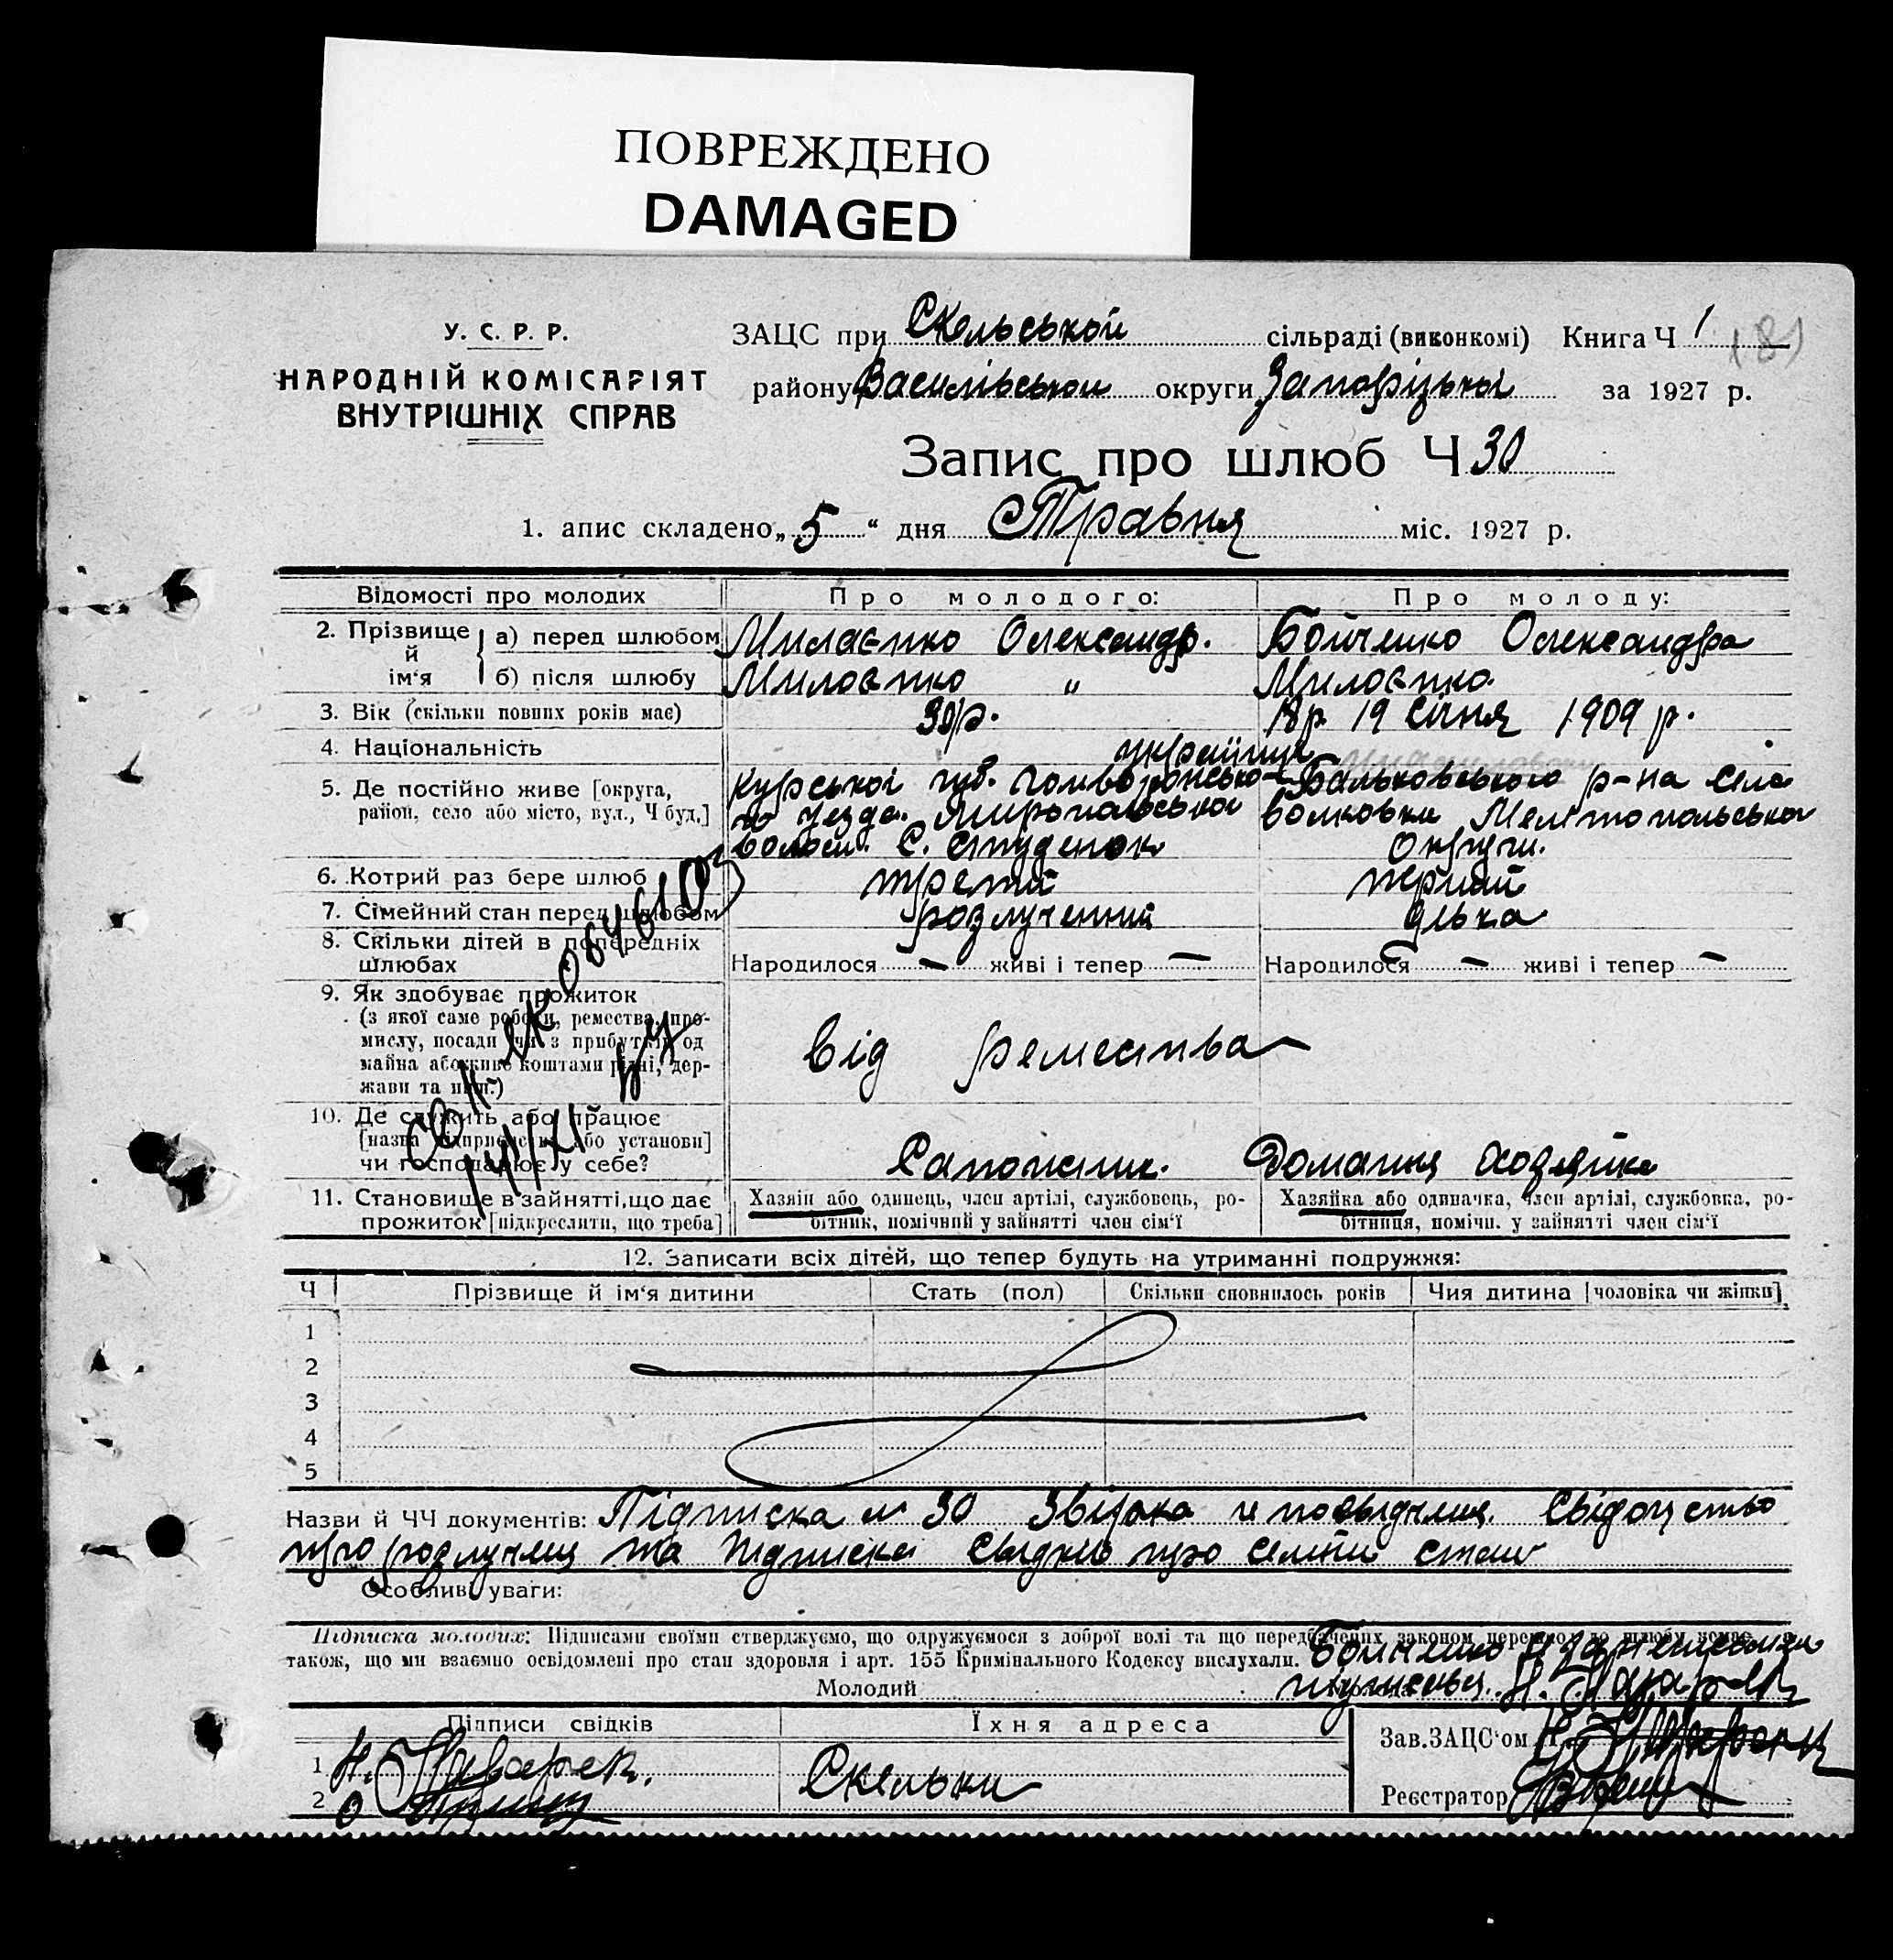 ПОВРЕЖДЕНО
DAMAGED
У. С. Р. Р.
НАРОДНІЙ КОМІСАРІЯТ
ВНУТРІШНІХ СПРАВ
ЗАЦС при Скельській сільраді (виконкомі) Книга Ч 1
району Василівського округи Запоріжької за 1927 р.
Запис про шлюб Ч 30
1. апис складено „ 5 “ дня Травня міс. 1927 р.
Відомості про молодих Про молодого: Про молоду:
2. Прізвище й ім‘я
а) перед шлюбом Милаєнко Олександр. Бойченко Олександра
б) після шлюбу Милоєнко " Милоєнко.
3. Вік (скільки повних років має) 30р. 18р. 19 Січня 1909 р.
4. Національність українці
5. Де постійно живе [округа, район, село або місто, вул., Ч буд.]
Курської губ. р-на Села
Мелітопольської
волост. С. Студенок Округи.
6. Котрий раз бере шлюб третій перший
7. Сімейний стан перед шлюбом розлучений дівка
8. Скільки дітей в попередніх шлюбах Народилося — живі і тепер — Народилося — живі і тепер —
9. Як здобуває прожиток
(з якої саме роботи, ремества, про-
мислу, посади чи з прибутків од
майна або живе коштами рідні, дер-
жави та инш.)
від ремества
10. Де служить або працює
[назва підприємства або установи]
чи господарює у себе?
Сапожник. Домашня хозяйка
11. Становище в зайнятті, що дає
прожиток [підкреслити, що треба]
Хазяїн або одинець, член артілі, службовець, ро-
бітник, помічний у зайнятті член сім‘ї
Хазяйка або одиначка, член артілі, службовка, ро-
бітниця, помічн. у зайнятті член сім‘ї
12. Записати всіх дітей, що тепер будуть на утриманні подружжя:
Ч Прізвище й ім‘я дитини Стать (пол) Скільки сповнилось років Чия дитина [чоловіка чи жінки]
1
2
3
4
5
Назви й ЧЧ документів: Підписка № 30 Свідоцтво
про та Підписка Свідків про стан
Особливі уваги:
Підписка молодих: Підписами своїми стверджуємо, що одружуємося з доброї волі та що передбачених законом перешкод до шлюбу немає, а
також, що ми взаємно освідомлені про стан здоровля і арт. 155 Кримінального Кодексу вислухали.
Молодий
Підписи свідків Їхня адреса
1
2
Скельки
Зав. ЗАЦС‘ом
Реєстратор